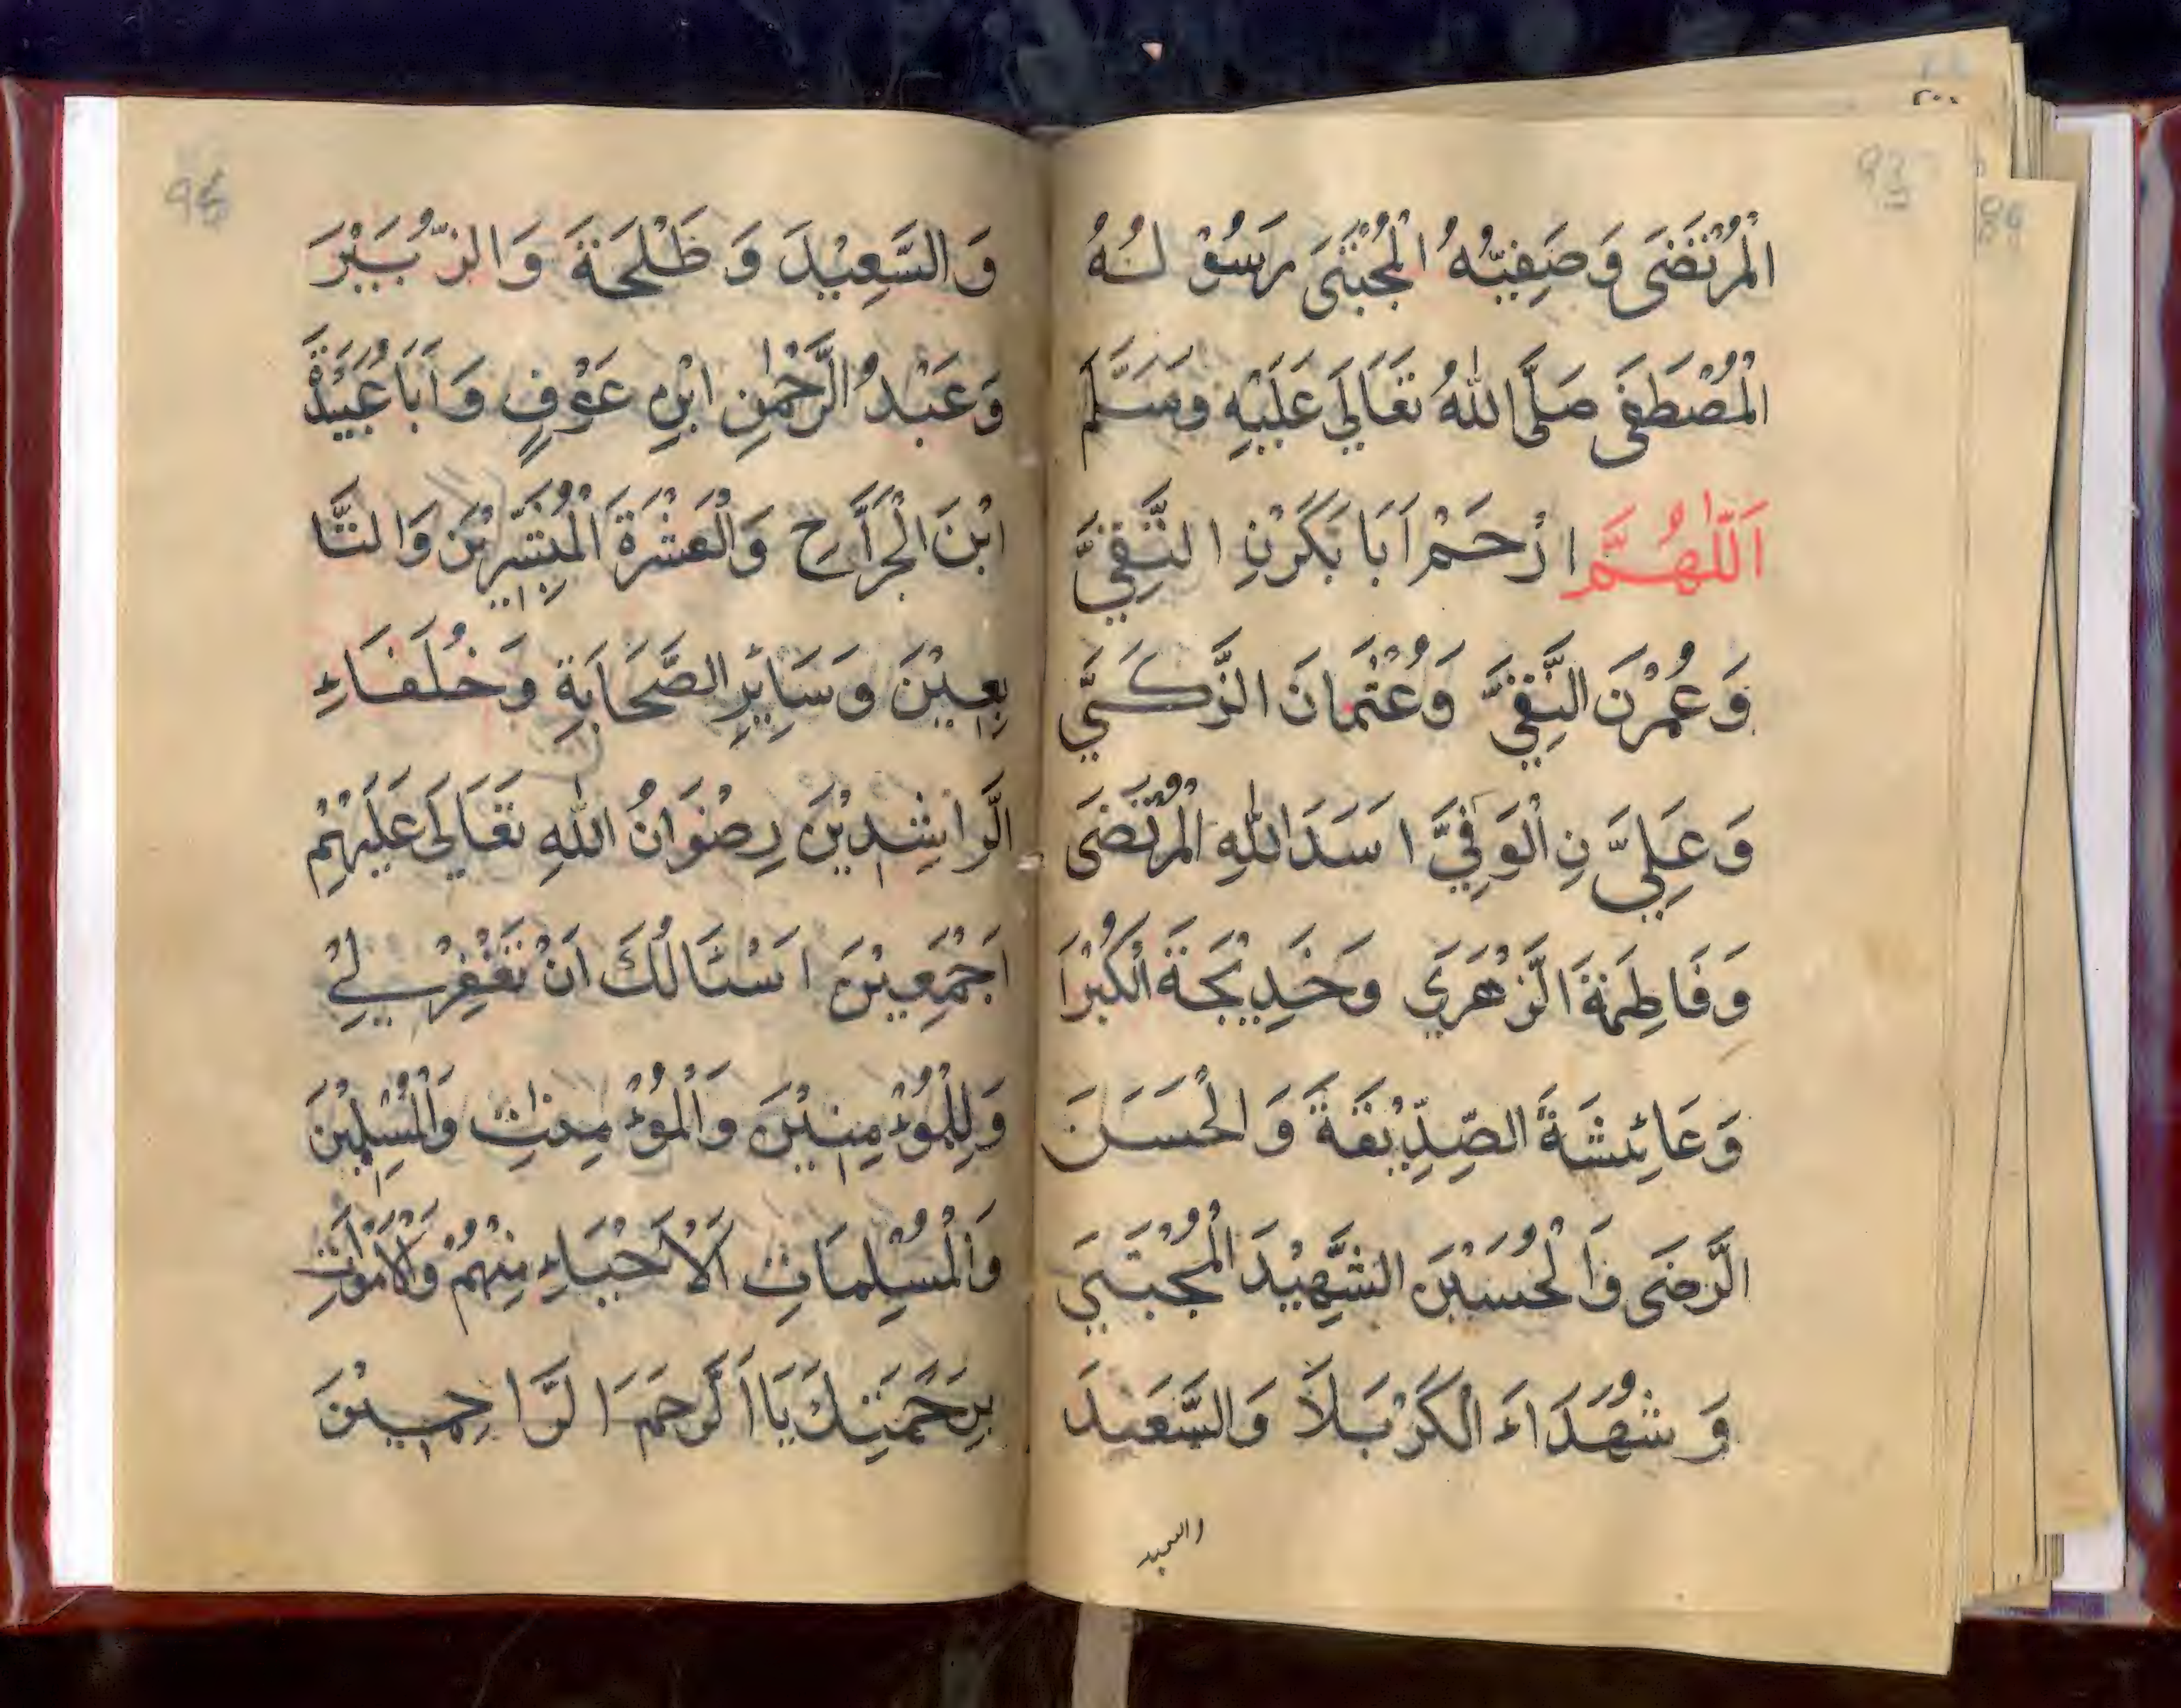 الْمُرْتَضَى وَصَفِيُّهُ الْمُجْتَبَى رَسُوْلُهُ
الْمُصْطَفَى صَلَّى اللّٰهُ تَعَالَى عَلَيْهِ وَسَلَّمَ
اَللّٰهُمَّ ارْحَمْ اَبَا بَكْرَنِ التَّقِيَّ
وَعُمَرْنَ النَّقِيَّ وَعُثْمَانَ الزَّكَيَّ
وَعَلِيَّ نِ الْوَفِيَّ اسَدَ اللّٰهِ الْمُرْتَضَى
وَفَاطِمَةَ الزَّهْرَي وَخَدِيْجَةَ الْكُبْرَا
وَعَائِشَةَ الصِّدِّيْقَةَ وَ الْحَسَنَ
الرَّضَى وَالْحُسَيْنَ الشَّهِيْدَ الْمُجْتَبَي
وَ شُهَدَاءَ الْكَرْبَلَا وَالسَّعَيْدَ
والسعيد
وَالسَّعِيْدَ وَ طَلْحَةَ وَالزُّبَيْرَ
وَعَبْدُ الرَّحْمٰنِ ابْنِ عَوْفٍ وَاَبَا عُبَيْدَةَ
ابْنَ الْجَرَّاحِ وَالْعَشْرَةَ الْمُبَشِّرِيْنَ وَالتَّا
بِعِيْنَ وَسَائِرِ الصَّحَابَةِ وَخُلَفَاءِ
الرَّاشِدِيْنَ رِضْوَانُ اللّٰهِ تَعَالَى عَلَيْهِمْ
اَجْمَعِيْنَ اَسْئَالُكَ اَنْ تَغْفِرْ لِيْ
وَلِلْمُؤْمِنِيْنَ وَالْمُؤْمِنٰتِ وَالْمُسْلِمِيْنَ
وَالْمُسْلِمَاتِ اَلْاَحْيَاءِ مِنْهُمْ وَالْاَمْوَاتِ
بِرَحْمَتِكَ يَا اَرْحَمَ الرَّاحِمِيْنَ